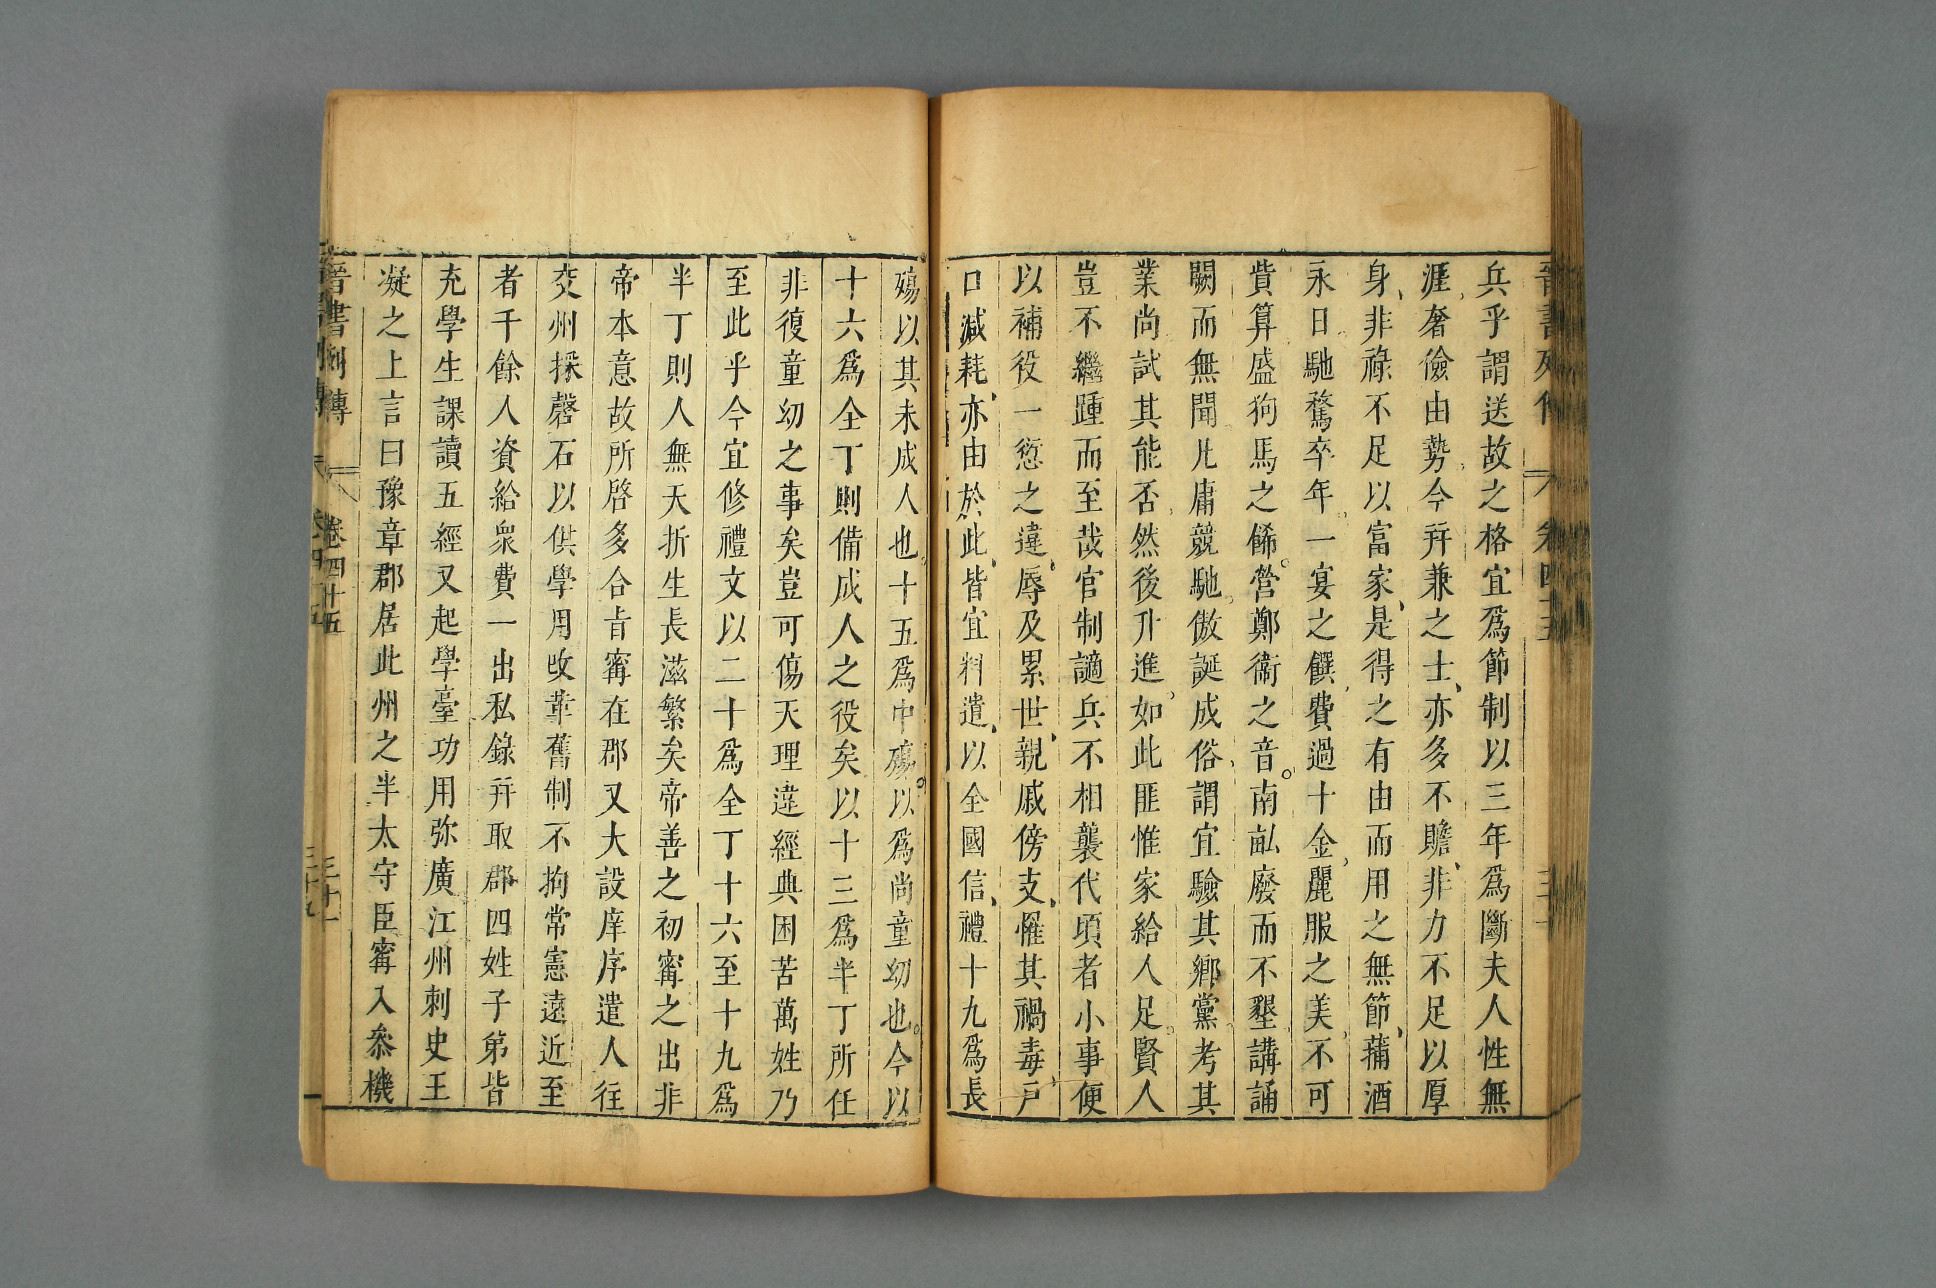 晉書列傳 卷四十五
兵乎謂送故之格宜爲節制以三年爲斷夫人性無
涯奢儉由勢今幷兼之士亦多不贍非力不足以厚
身非祿不足以富家是得之有由而用之無節蒱酒
永日馳騖卒年一宴之饌費過十金麗服之美不可
貲算盛狗馬之餙營鄭衞之音南畝廢而不墾講誦
闕而無聞凡庸競馳傲誕成俗謂宜驗其鄉黨考其
業尚試其能否然後升進如此匪惟家給人足賢人
豈不繼踵而至哉官制讁兵不相襲代頃者小事便
以補役一愆之違辱及累世親戚傍支罹其禍毒戸
口減耗亦由於此皆宜料遣以全國信禮十九爲長
殤以其未成人也十五爲中殤以爲尚童幼也今以
十六爲全丁則備成人之役矣以十三爲半丁所任
非復童幼之事矣豈可傷天理違經典困苦萬姓乃
至此乎今宜修禮文以二十爲全丁十六至十九爲
半丁則人無夭折生長滋繁矣帝善之初甯之出非
帝本意故所啓多合旨甯在郡又大設庠序遣人往
交州採磬石以供學用改革舊制不拘常憲遠近至
者千餘人資給衆費一出私錄幷取郡四姓子弟皆
充學生課讀五經又起學臺功用弥廣江州刺史王
凝之上言曰豫章郡居此州之半太守臣甯入叅機
晉書列傳 卷四十五 三十一